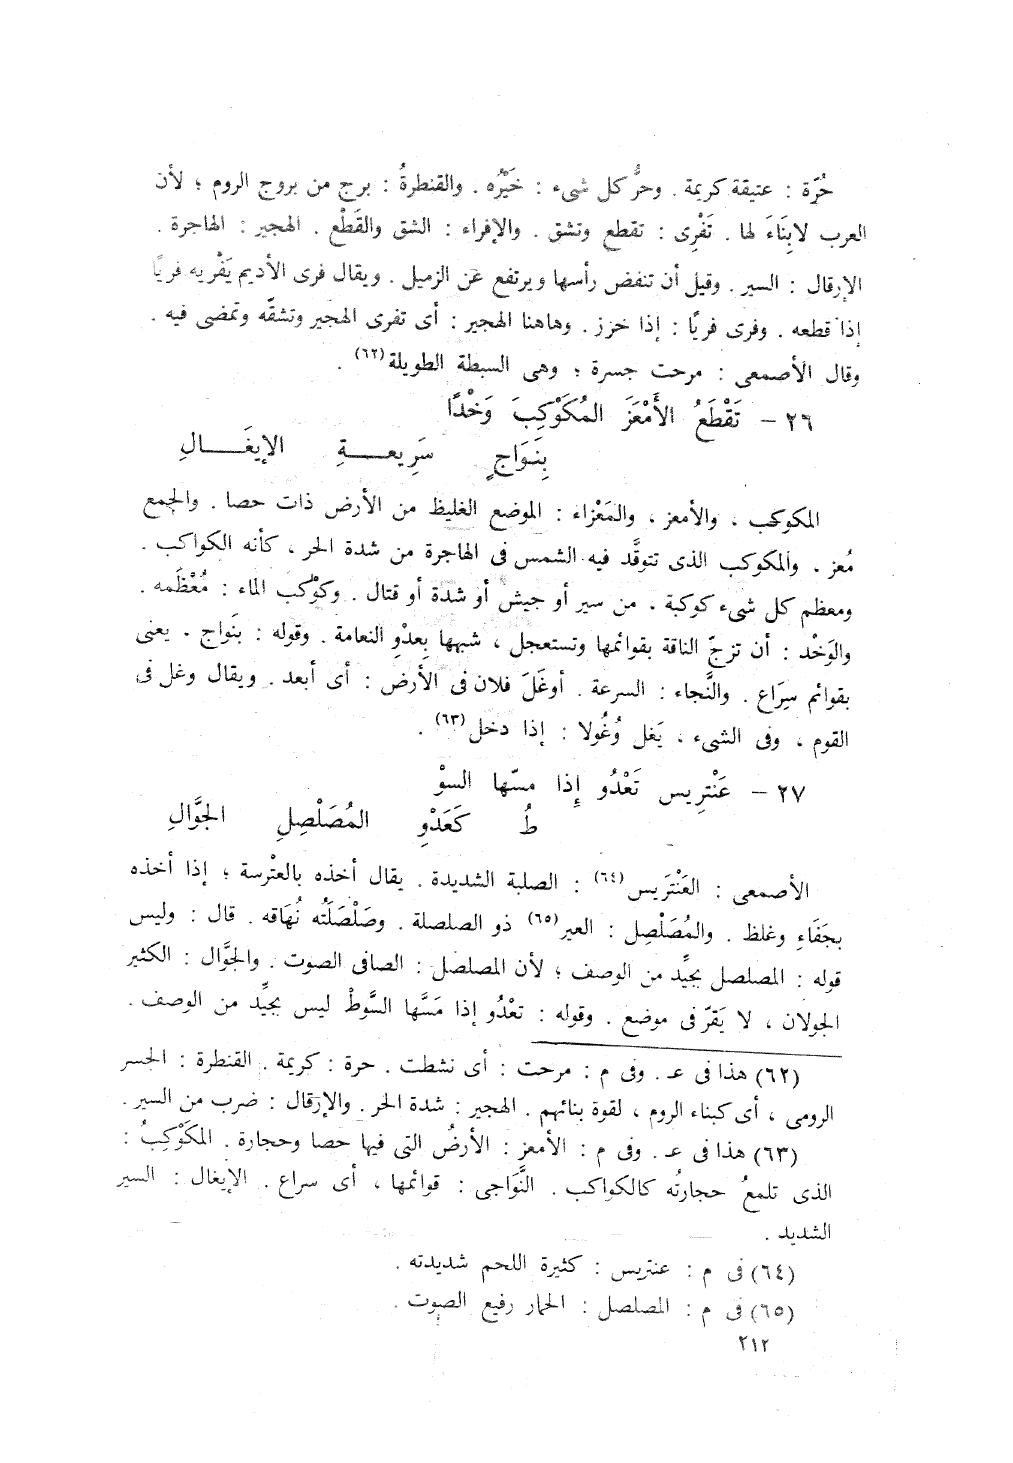 حُرّة : عتيقة كريمة . وحرُّ كل شىء : خَيْرُه . والقنطرةُ : برج من بروج الروم ؛ لأن
العرب لابِنَاءَ لها . تَفْرِى : تقطع وتشق . والإفراء : الشق والقَطْع . الهجير : الهاجرة .
الإرقال : السير . وقيل أن تنفض رأسها ويرتفع عن الزميل . ويقال فرى الأديم يَفْريه فريًا
إذا قطعه . وفرى فريًا : إذا خرز . وهاهنا الهجير : أى تفرى الهجير وتشقّه وتمضى فيه .
وقال الأصمعى : مرحت جسرة ؛ وهى السبطة الطويلة(٦٢) .
٢٦ – تَقْطَعُ الأَمْعَزَ المُكَوْكِبَ وَخْدًا
بِنَوَاجٍ سَرِيعـــةِ الإيغَـــالِ
المكوكب ، والأمعز ، والمَعْزاء : الموضع الغليظ من الأرض ذات حصا . والجمع
مُعز . والمكوكب الذى تتوقَّد فيه الشمس فى الهاجرة من شدة الحر ، كأنه الكواكب .
ومعظم كل شىء كوكبة ، من سير أو جيش أو شدة أو قتال . وكوْكب الماء : مُعْظَمه .
والوَخْد : أن تزجّ الناقة بقوائمها وتستعجل ، شبهها بِعدْوِ النعامة . وقوله : بنَواج . يعنى
بقوائم سِرَاع . والنَّجاء : السرعة . أوغَلَ فلان فى الأرض : أى أبعد . ويقال وغل فى
القوم ، وفى الشىء ، يَغل وُغُولا : إذا دخل(٦٣) .
٢٧ – عَنْترِيس تَعْدُو إِذا مسّها السوْ
طُ كَعَدْوِ المُصَلْصِلِ الجَوَّالِ
الأصمعى : العَنْتَريس(٦٤) : الصلبة الشديدة . يقال أخذه بالعتْرسة ؛ إذا أخذه
بجَفَاءِ وغلظ . والمُصَلْصِل : العير(٦٥) ذو الصلصلة . وصَلْصَلَتُه نُهَاقه . قال : وليس
قوله : المصلصل بجيِّد من الوصف ؛ لأن المصلصل : الصافى الصوت . والجوَّال : الكثير
الجولان ، لا يَقرّ فى موضع . وقوله : تعْدُو إذا مَسَّها السَّوطْ ليس بجيِّد من الوصف .
(٦٢) هذا فى عـ . وفى م : مرحت : أى نشطت . حرة : كريمة . القنطرة : الجسر
الرومى ، أى كبناء الروم ، لقوة بنائهم . الهجير : شدة الحر . والإرقال : ضرب من السير .
(٦٣) هذا فى عـ . وفى م : الأمعز : الأرضُ التى فيها حصا وحجارة . المكَوْكِبُ :
الذى تلمعُ حجارتُه كالكواكب . النَّوَاجى : قوائمها ، أى سراع . الإيغال : السير
الشديد .
(٦٤) فى م : عنتريس : كثيرة اللحم شديدته .
(٦٥) فى م : المصلصل : الحمار رفيع الصوت .
٢١٢